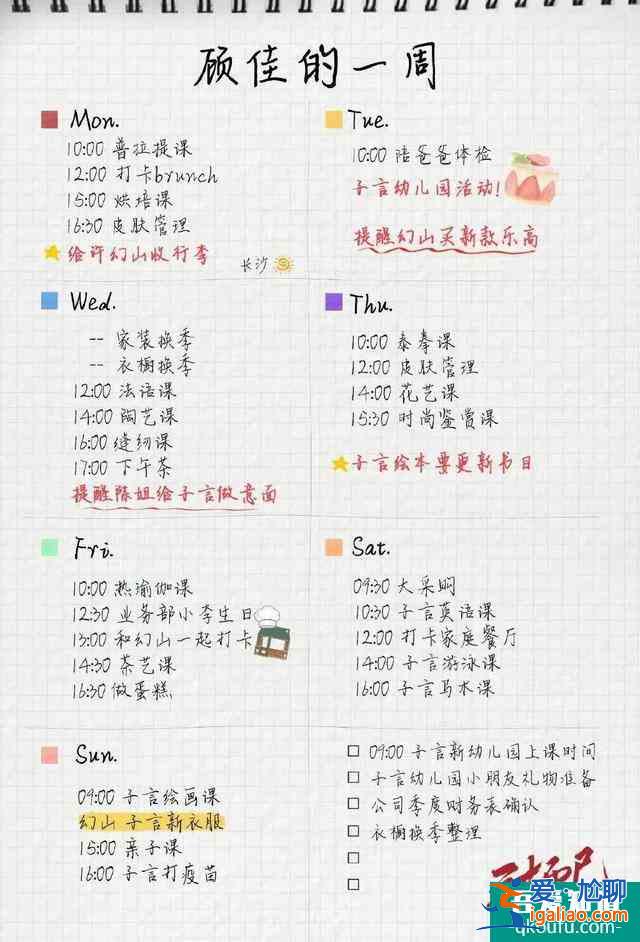 顾佳的一周
Mon.
10:00 普拉提课
12:00 打卡brunch
15:00 烘培课
16:30 皮肤管理
给许幻山收行李
长沙
Tue.
10:00 陪爸爸体检
子言幼儿园活动!
提醒幻山买新款乐高
Wed.
-- 家装换季
-- 衣橱换季
12:00 法语课
14:00 陶艺课
16:00 缝纫课
17:00 下午茶
提醒陈姐给子言做意面
Thu.
10:00 泰拳课
12:00 皮肤管理
14:00 花艺课
15:30 时尚鉴赏课
子言绘本要更新书目
Fri.
10:00 热瑜伽课
12:30 业务部小李生日
13:00 和幻山一起打卡
14:30 茶艺课
16:30 做蛋糕
Sat.
09:30 大采购
10:30 子言英语课
12:00 打卡家庭餐厅
14:00 子言游泳课
16:00 子言马术课
Sun.
09:00 子言绘画课
幻山 子言新衣服
15:00 亲子课
16:00 子言打疫苗
09:00 子言新幼儿园上课时间
子言幼儿园小朋友礼物准备
公司季度财务表确认
衣橱换季整理
爱尬聊
www.igaliao.com
qkoufu.com